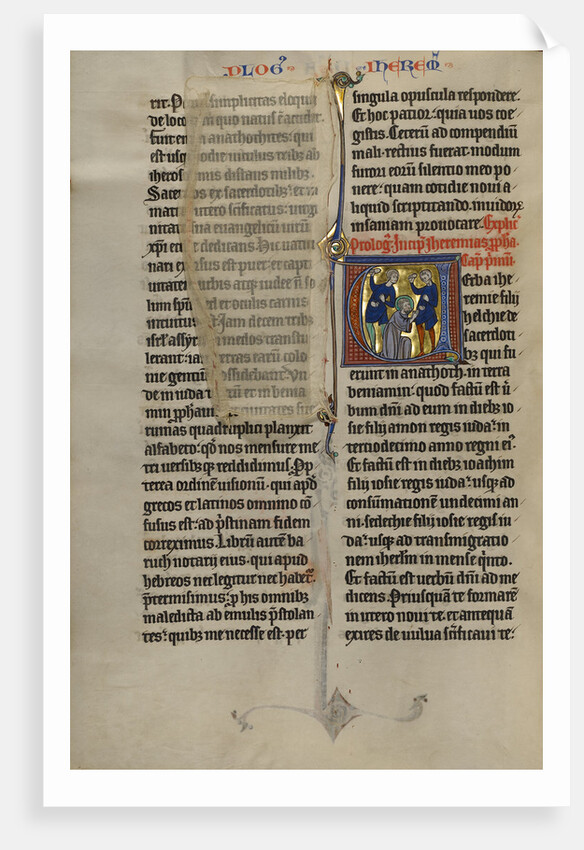 PLOG' IHEREM'
rit. simplicitas eloquii
de loco in quo natus e accidit.
fuit eni anathothites: qui
est usq hodie viculus tribz ab
iherosolimis distans milibz.
Sacerdos ex sacerdotibz: et i
matris utero scificatus: uirgi
nitate sua euangelicum uirum
xpi ecclie dedicans. Hic uaticinari
exorsus est puer: et capti
uitatem urbis atq iudee n so
lum spu sed et oculis carnis
intuitus e. Iam decem tribz
isrl assyrii in medos transtu
lerant: iam terras earum colo
nie gentium possidebant. Vn
de in iuda tm et in benia
min pphauit: et ciuitatis sue
ruinas quadruplici planxit
alfabeto: qd nos mensure me
tri uersibzq reddidimus. Pp
terea ordinem uisionum: qui apd
grecos et latinos omnino co
fusus est: ad pstinam fidem
correximus. Librum autem ba
ruch notarii eius. qui apud
hebreos nec legitur nec habet.
ptermisimus: p his omnibz
maledicta ab emulis pstolan
tes: quibz me necesse est. per
singula opuscula respondere.
Et hoc patior: quia uos coe
gistis. Ceterum ad compendium
mali. rectius fuerat. modum
furori eorum silentio meo po
nere: quam cotidie noui a
liquid scriptitando. inuidorz
insaniam prouocare. Explic
Prolog. Incip Iheremias ppha.
Cap pmum.
Verba ihe
remie filii
helchie de
sacerdoti
bz qui fu
erunt in anathoth. in terra
beniamin: quod factum est u
bum dni ad eum in diebz io
sie filii amon regis iuda: in
tertiodecimo anno regni ei.
Et factum est in diebz ioachim
filii iosie regis iuda: usq ad
consummationem undecimi an
ni. sedechie filii iosie regis iu
da: usq ad transmigratio
nem iherlm in mense qinto.
Et factum est uerbum dni ad me
dicens. Priusqua te formarem
in utero noui te. et antequa
exires de uulua scificaui te: